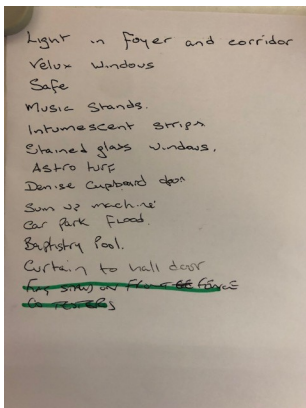 Light in Foyer and corridor
Velux windows
Safe
Music Stands.
Intumescent strips
Stained glass windows.
Astro turf
Denise Cupboard door
Sum up machine
Car Park Flood.
Baptistry Pool.
Curtain to hall door
on Front